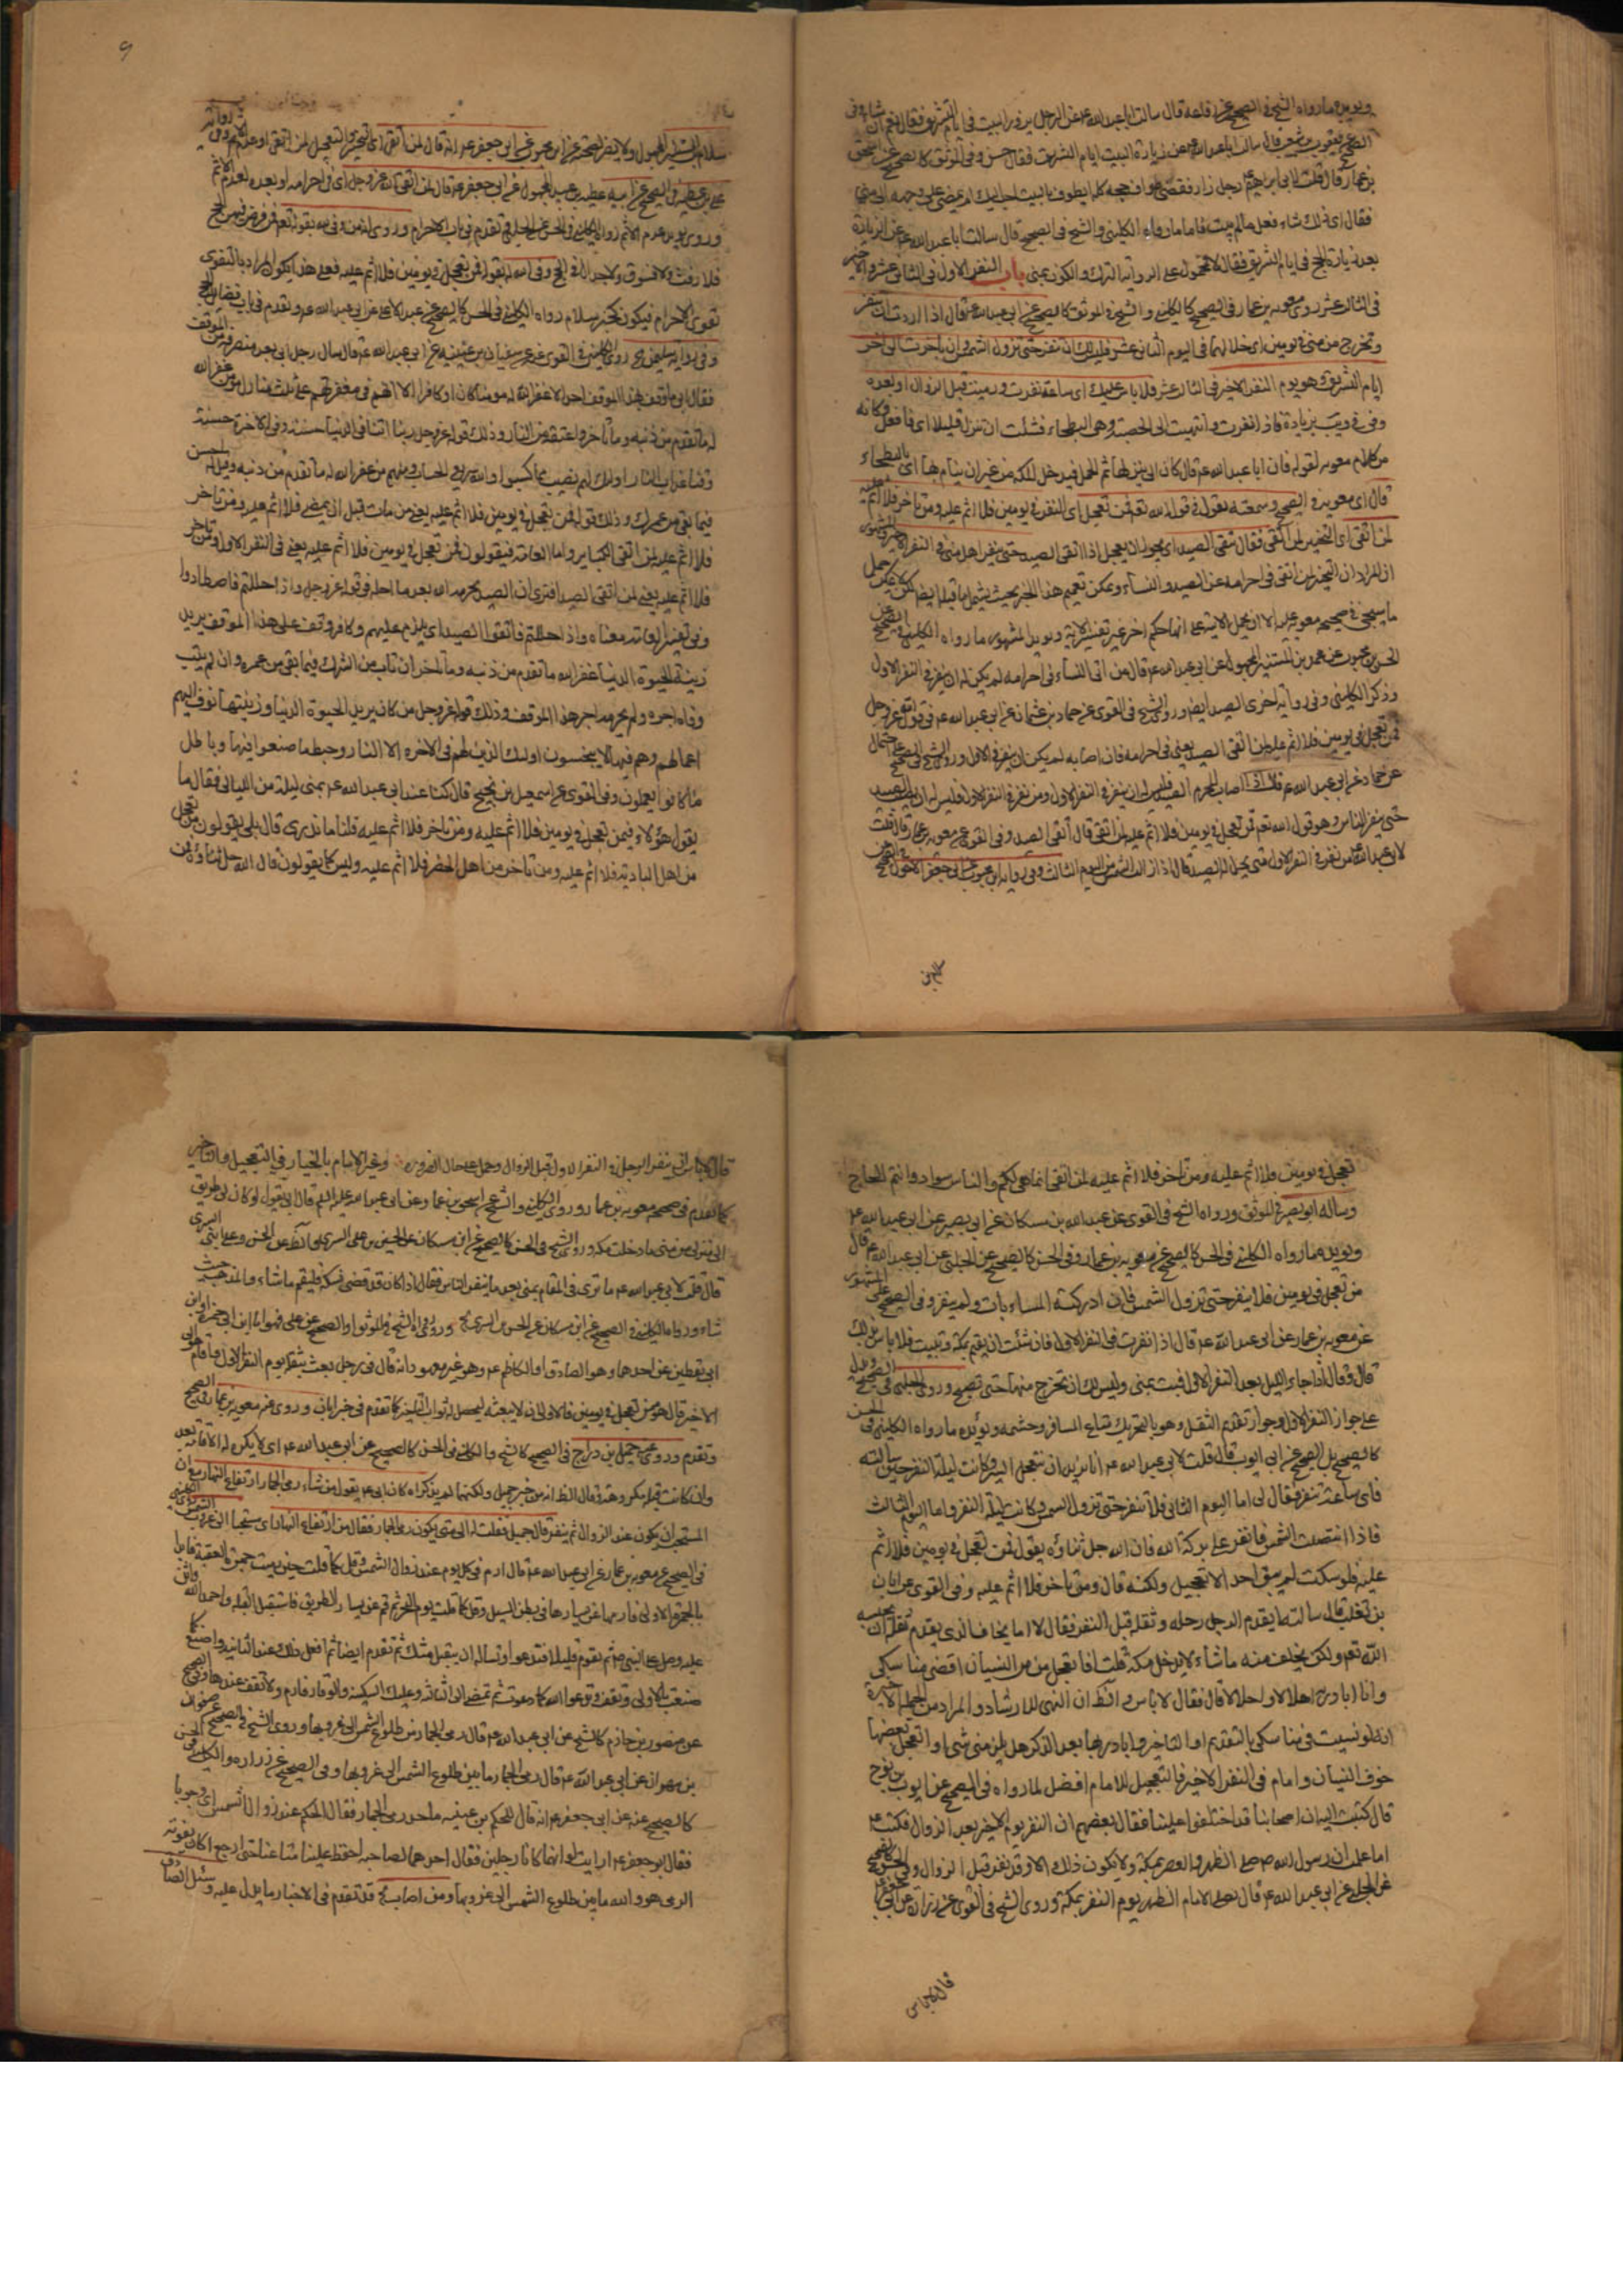 ويؤيده ما رواه الشيخ في الصحيح عن رفاعة قال سالت ابا عبد الله ع عن الرجل يزور البيت في ايام التشريق فقال نعم ان شاء وفي
الصحيح عن يعقوب بن شعيب قال سالت ابا عبد الله ع عن زيارة البيت ايام التشريق فقال حسن وفي الموثق كالصحيح عن اسحق
بن عمار قال قلت لابي ابراهيم ع رجل زار فقضى طواف حجه كله ايطوف بالبيت احب اليك ام يمضي على وجهه الى منى
فقال اي ذلك شاء فعل ما لم يبت فاما ما رواه الكليني والشيخ في الصحيح قال سالت ابا عبد الله ع عن الزيارة
بعد زيارة الحج في ايام التشريق فقال لا فمحمول على الترك والكون بمنى باب النفر الاول في الثاني عشر والاخير
في الثالث عشر روى معوية بن عمار في الصحيح كالكليني والشيخ في الموثق كالصحيح عن ابي عبد الله ع قال اذا اردت ان تنفر
وتخرج من منى في يومين اي خلالهما في اليوم الثاني عشر فليس لك ان تنفر حتى تزول الشمس وان تاخرت الى اخر
ايام التشريق وهو يوم النفر الاخير في الثالث عشر فلا باس عليك اي ساعة نفرت ورميت قبل الزوال او بعده
وفي في ويب بزيادة فاذا نفرت وانتهيت الى الحصبة وهي البطحاء فشئت ان تنزل قليلا اي فافعل وكانه
من كلام معوية لقوله فان ابا عبد الله ع قال كان ابي ينزلها ثم يحمل فيدخل مكة من غير ان ينام بها اي بالبطحاء
قال اي معوية في الصحيح وسمعته يقول في قول الله تع فمن تعجل اي النفر في يومين فلا اثم عليه ومن تاخر فلا اثم عليه
لمن اتقى اي التخيير لمن اتقى فقال يتقي الصيد اي يجوز ان يعجل اذا اتقى الصيد حتى ينفر اهل منى في النفر الاخير والمشهور
ان المراد ان التخيير لمن اتقى في احرامه عن الصيد والنساء ويمكن تعميم هذا الخبر بحيث يشمل ما قبله ايضا لكن لا يمكن حمل
ما سيجيء في صحيحة معوية عليه الا ان يحمل الاية على انها حكم اخر غير تفسير الاية ويؤيد المشهور ما رواه الكليني في الصحيح عن
الحسن بن محبوب عن محمد بن المستنير المجهول عن ابي عبد الله ع قال من اتى النساء في احرامه لم يكن له ان ينفر في النفر الاول
وذكر الكليني وفي رواية اخرى الصيد ايضا وروى الشيخ في القوي عن حماد بن عثمان عن ابي عبد الله ع في قول الله عز وجل
فمن تعجل في يومين فلا اثم عليه لمن اتقى الصيد يعني في احرامه فان اصابه لم يكن له ان ينفر في الاول وروى الشيخ في الصحيح على احتمال
عن حماد عن ابي عبد الله ع قال اذا اصاب المحرم الصيد فليس له ان ينفر في النفر الاول ومن نفر في النفر الاول فليس له ان يصيب الصيد
حتى ينفر الناس وهو قول الله تع فمن تعجل في يومين فلا اثم عليه لمن اتقى قال اتقى الصيد وفي القوي عن معوية بن عمار قال قلت
لابي عبد الله ع من نفر في النفر الاول متى يحل له الصيد قال اذا زالت الشمس من اليوم الثالث وفي رواية ابن محبوب عن ابي جعفر الاحول في الصحيح عن
سلام بن
٩
سلام بن المستنير المجهول ولا يضر لصحته عن ابن محبوب عن ابي جعفر ع انه قال لمن اتقى اي التخيير والتعجيل لمن اتقى او عدم الاثم وفي رواية
علي بن عطية في الصحيح عن ابيه عطية بن عبيد المجهول عن ابي جعفر ع قال لمن اتقى الله عز وجل اي في احرامه او بعده لعدم الاثم
وروى يؤيد عدم الاثم رواه الكليني في الحسن عن الحلبي وتقدم في باب الاحرام وروى انه من وفى لله بقوله تع فمن فرض فيهن الحج
فلا رفث ولا فسوق ولا جدال في الحج وفى الله له بقوله فمن تعجل في يومين فلا اثم عليه فعلى هذا يكون المراد بالتقوى
تقوى الاحرام فيكون كخبر سلام رواه الكليني في الحسن كالصحيح عن عبد الاعلى عن ابي عبد الله ع وتقدم في باب فضائل الحج
وفي رواية سليمن روى الكليني في القوي عنه عن سفيان بن عيينة عن ابي عبد الله ع قال سال رجل ابي بعد منصرفه من الموقف
فقال اترى يخيب الله هذا الخلق كله فقال ابي ما وقف بهذا الموقف احد الا غفر الله له مؤمنا كان او كافرا الا انهم في مغفرتهم على ثلث منازل مؤمن غفر الله
له ما تقدم من ذنبه وما تاخر واعتقه من النار وذلك قوله عز وجل ربنا اتنا في الدنيا حسنة وفي الاخرة حسنة
وقنا عذاب النار اولئك لهم نصيب مما كسبوا والله سريع الحساب ومنهم من غفر الله له ما تقدم من ذنبه وقيل له احسن
فيما بقي من عمرك وذلك قوله فمن تعجل في يومين فلا اثم عليه يعني من مات قبل ان يمضي فلا اثم عليه ومن تاخر
فلا اثم عليه لمن اتقى الكبائر واما العامة فيقولون فمن تعجل في يومين فلا اثم عليه يعني في النفر الاول ومن تاخر
فلا اثم عليه يعني لمن اتقى الصيد افترى ان الصيد يحرمه الله بعد ما احله في قوله عز وجل واذا حللتم فاصطادوا
وفي تفسير العامة معناه واذا حللتم فاتقوا الصيد اي يلزم عليهم وكافر وقف على هذا الموقف يريد
زينة الحيوة الدنيا غفر الله ما تقدم من ذنبه وما تاخر ان تاب من الشرك فيما بقي من عمره وان لم يتب
وفاه اجره ولم يحرمه اجر هذا الموقف وذلك قوله عز وجل من كان يريد الحيوة الدنيا وزينتها نوف اليهم
اعمالهم وهم فيها لا يبخسون اولئك الذين ليس لهم في الاخرة الا النار وحبط ما صنعوا فيها وباطل
ما كانوا يعملون وفي القوي عن اسمعيل بن نجيح قال كنا عند ابي عبد الله ع بمنى ليلة من الليالي فقال ما
يقول هؤلاء فيمن تعجل في يومين فلا اثم عليه ومن تاخر فلا اثم عليه قلنا ما ندري قال بلى يقولون من تعجل
من اهل البادية فلا اثم عليه ومن تاخر من اهل الحضر فلا اثم عليه وليس كما يقولون قال الله جل ثناؤه فمن
تعجل في يومين فلا اثم عليه ومن تاخر فلا اثم عليه لمن اتقى انما هي لكم والناس سواد وانتم الحاج
وساله ابو بصير في الموثق ورواه الشيخ في القوي عن عبد الله بن مسكان عن ابي بصير عن ابي عبد الله ع
ويؤيده ما رواه الكليني في الحسن كالصحيح عن معوية بن عمار وفي الحسن كالصحيح عن الحلبي عن ابي عبد الله ع قال
من تعجل في يومين فلا ينفر حتى تزول الشمس فان ادركه المساء بات ولم ينفر وفي الصحيح على المشهور
عن معوية بن عمار عن ابي عبد الله ع قال اذا نفرت في النفر الاول فان شئت ان تقيم بمكة وتبيت فلا باس بذلك
قال وقال اذا جاء الليل بعد النفر الاول فبت بمنى وليس لك ان تخرج منها حتى تصبح وروى الحلبي في الصحيح ويدل
على جواز النفر الاول وجواز تقديم الثقل وهو بالتحريك متاع المسافر وحشمه ويؤيده ما رواه الكليني في الحسن
كالصحيح بل الصحيح عن ابي ايوب قال قلت لابي عبد الله ع انا نريد ان نتعجل السير وكانت ليلة النفر حين سالته
فاي ساعة ننفر فقال لي اما اليوم الثاني فلا تنفر حتى تزول الشمس وكانت ليلة النفر واما اليوم الثالث
فاذا ابيضت الشمس فانفر على بركة الله فان الله جل ثناؤه يقول فمن تعجل في يومين فلا اثم
عليه فلو سكت لم يبق احد الا تعجل ولكنه قال ومن تاخر فلا اثم عليه وفي القوي عن ابان
بن تغلب قال سالته ايقدم الرجل رحله وثقله قبل النفر فقال لا اما يخاف الذي يقدم ثقله ان يحبسه
الله تع ولكن يخلف منه ما شاء لا يدخل مكة قلت افاتعجل من النسيان اقضي مناسكي
وانا ابادر به اهلالا واحلالا قال فقال لا باس والظ ان النهي للارشاد والمراد من الجملة الاخيرة
انه لو نسيت في مناسكي بالتقديم او التاخير وابادر بها بعد الذكر هل يلزمني شيء او اتعجل بعضها
خوف النسيان وامام في النفر الاخير فالتعجيل للامام افضل لما رواه في الصحيح عن ايوب بن نوح
قال كتبت اليه ان اصحابنا قد اختلفوا علينا فقال بعضهم ان النفر يوم الاخير بعد الزوال فكتب ع
اما علمت ان رسول الله ص صلى الظهر والعصر بمكة ولا يكون ذلك الا وقد نفر قبل الزوال وفي الحسن كالصحيح
عن الحلبي عن ابي عبد الله ع قال يصلي الامام الظهر يوم النفر بمكة وروى الشيخ في القوي عن زرارة عن ابي جعفر ع
قال لا باس
قال لا باس ان ينفر الرجل في النفر الاول قبل الزوال وحمل على حال الضرورة وغير الامام بالخيار في التعجيل والتاخير
كما تقدم في صحيحة معوية بن عمار وروى الكليني والشيخ عن اسحق بن عمار وعن ابي عبد الله عليه السلم قال ابي يقول لو كان لي طريق
الى منزلي من منى ما دخلت مكة وروى الشيخ في الحسن كالصحيح عن ابن مسكان عن الحسن بن علي السري والظ عن الحسن وعلي ابني السري
قال قلت لابي عبد الله ع ما ترى في المقام بمنى بعد ما ينفر الناس فقال اذا كان قد قضى نسكه فليقم ما شاء وليذهب حيث
شاء ورواه الكليني في الصحيح عن ابن مسكان عن الحسن بن السري وروى الشيخ في الموثق او الصحيح عن علي فهو اما ابن ابي حمزة او ابن
ابي يقطين عن احدهما وهو الصادق او الكاظم ع وهو غير معهود انه قال في رجل بعث بثقله يوم النفر الاول واقام هو الى
الاخير قال هو ممن تعجل في يومين فالاولى ان لا يبعثه ليحصل له ثواب التاخير كما تقدم في خبر ابان وروى عنه معوية بن عمار في الصحيح
وتقدم وروى عن جميل بن دراج في الصحيح كالشيخ والكليني في الحسن كالصحيح عن ابي عبد الله ع اي لا يكره له الاقامة بعد
في الصحيح عن معوية بن عمار عن ابي عبد الله ع قال ارم في كل يوم عند زوال الشمس وقل كما قلت حين رميت جمرة العقبة فابدا
بالجمرة الاولى فارمها عن يسارها في بطن المسيل وقل كما قلت يوم النحر ثم قم عن يسار الطريق فاستقبل القبلة واحمد الله واثن
عليه وصل على النبي ص ثم تقدم قليلا فتدعو وتساله ان يتقبل منك ثم تقدم ايضا ثم افعل ذلك عند الثانية واصنع كما
صنعت بالاولى وتقف وتدعو الله كما دعوت ثم تمضي الى الثالثة وعليك السكينة والوقار فارم ولا تقف عندها وفي الصحيح
عن منصور بن حازم كالشيخ عن ابي عبد الله ع قال رمي الجمار من طلوع الشمس الى غروبها وروى الشيخ في الصحيح عن صفوان
بن مهران عن ابي عبد الله ع قال رمي الجمار ما بين طلوع الشمس الى غروبها وفي الصحيح عن زرارة والكليني في الحسن
كالصحيح عنه عن ابي جعفر ع انه قال للحكم بن عيينة ما حد رمي الجمار فقال الحكم عند زوال الشمس اي وجوبا
فقال ابو جعفر ع ارايت لو انهما كانا رجلين فقال احدهما لصاحبه احفظ علينا متاعنا حتى ارجع اكان يفوته
الرمي هو والله ما بين طلوع الشمس الى غروبها ومن اصاب قد تقدم في الاخبار ما يدل عليه وسئل الصادق